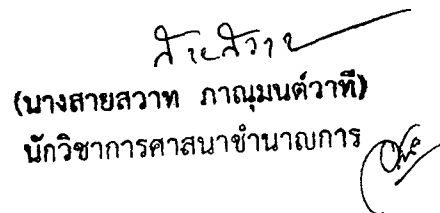 สายสวาท
(นางสายสวาท ภาณุมนต์วาที)
นักวิชาการศาสนาชำนาญการ